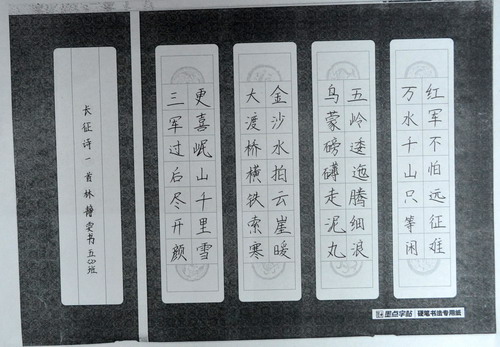 红军不怕远征难
万水千山只等闲
五岭逶迤腾细浪
乌蒙磅礴走泥丸
金沙水拍云崖暖
大渡桥横铁索寒
更喜岷山千里雪
三军过后尽开颜
长征诗一首林 雯书五(3)班
墨点字帖 硬笔书法专用纸